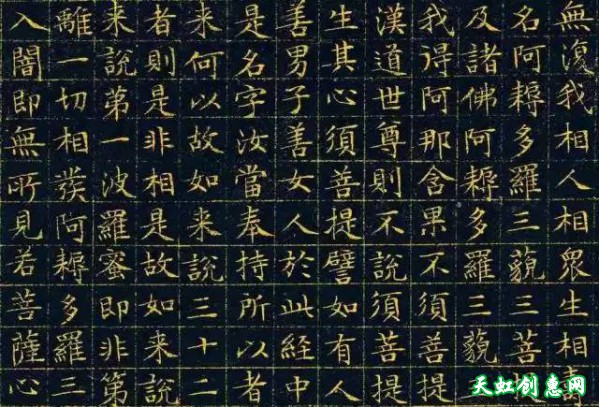 無復我相人相眾生相壽
名阿耨多羅三藐三菩
及諸佛阿耨多羅三藐
我得阿那含果不須菩提
漢道世尊則不說須菩提
生其心須菩提譬如有人
善男子善女人於此経中
是名字汝當奉持所以者
来何以故如来說三十二
者則是非相是故如来說
来說第一波羅蜜即非第
離一切相發阿耨多羅三
入闇即無所見若菩薩心
天虹创惠网